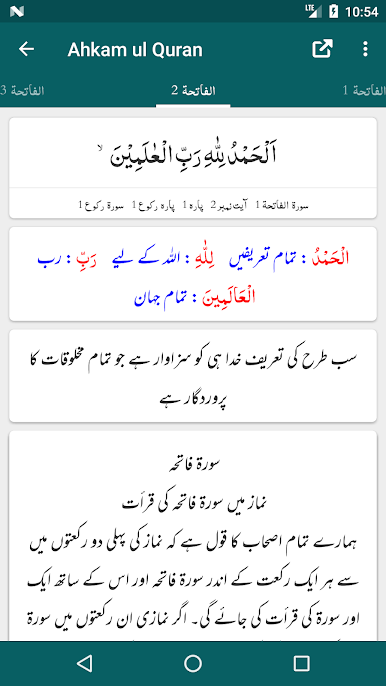 LTE 10:54
Ahkam ul Quran
الفاتحة 1 الفاتحة 2 الفاتحة 3
اَلْحَمْدُ لِلّٰهِ رَبِّ الْعٰلَمِيْنَ ۙ
سورۃ الفاتحۃ 1 آیت نمبر 2 پارہ 1 پارہ رکوع 1 سورۃ رکوع 1
الْحَمْدُ : تمام تعریفیں لِلّٰهِ : اللہ کے لیے رَبِّ : رب
الْعَالَمِينَ : تمام جہان
سب طرح کی تعریف خدا ہی کو سزاوار ہے جو تمام مخلوقات کا
پروردگار ہے
سورۃ فاتحہ
نماز میں سورۃ فاتحہ کی قرأت
ہمارے تمام اصحاب کا قول ہے کہ نماز کی پہلی دو رکعتوں میں
سے ہر ایک رکعت کے اندر سورۃ فاتحہ اور اس کے ساتھ ایک
اور سورۃ کی قرأت کی جائے گی۔ اگر نمازی ان رکعتوں میں سورۃ